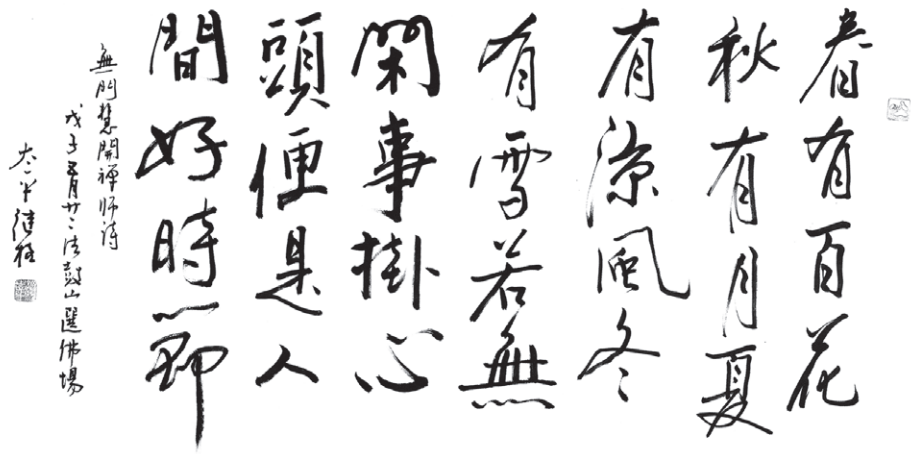 春有百花
秋有月夏
有涼風冬
有雪若無
閑事掛心
頭便是人
間好時節
無門慧開禪师诗
戊子五月廿二法鼓山選佛場
太平継程